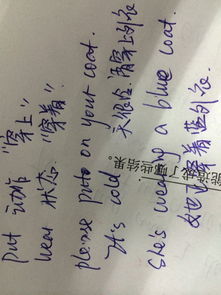 put 动作 "穿上"
wear 状态 "穿着"
please put on your coat.
It's cold 天很冷.请穿上外套
She's wearing a blue coat.
她正穿着蓝外套
能造成了哪些结果。